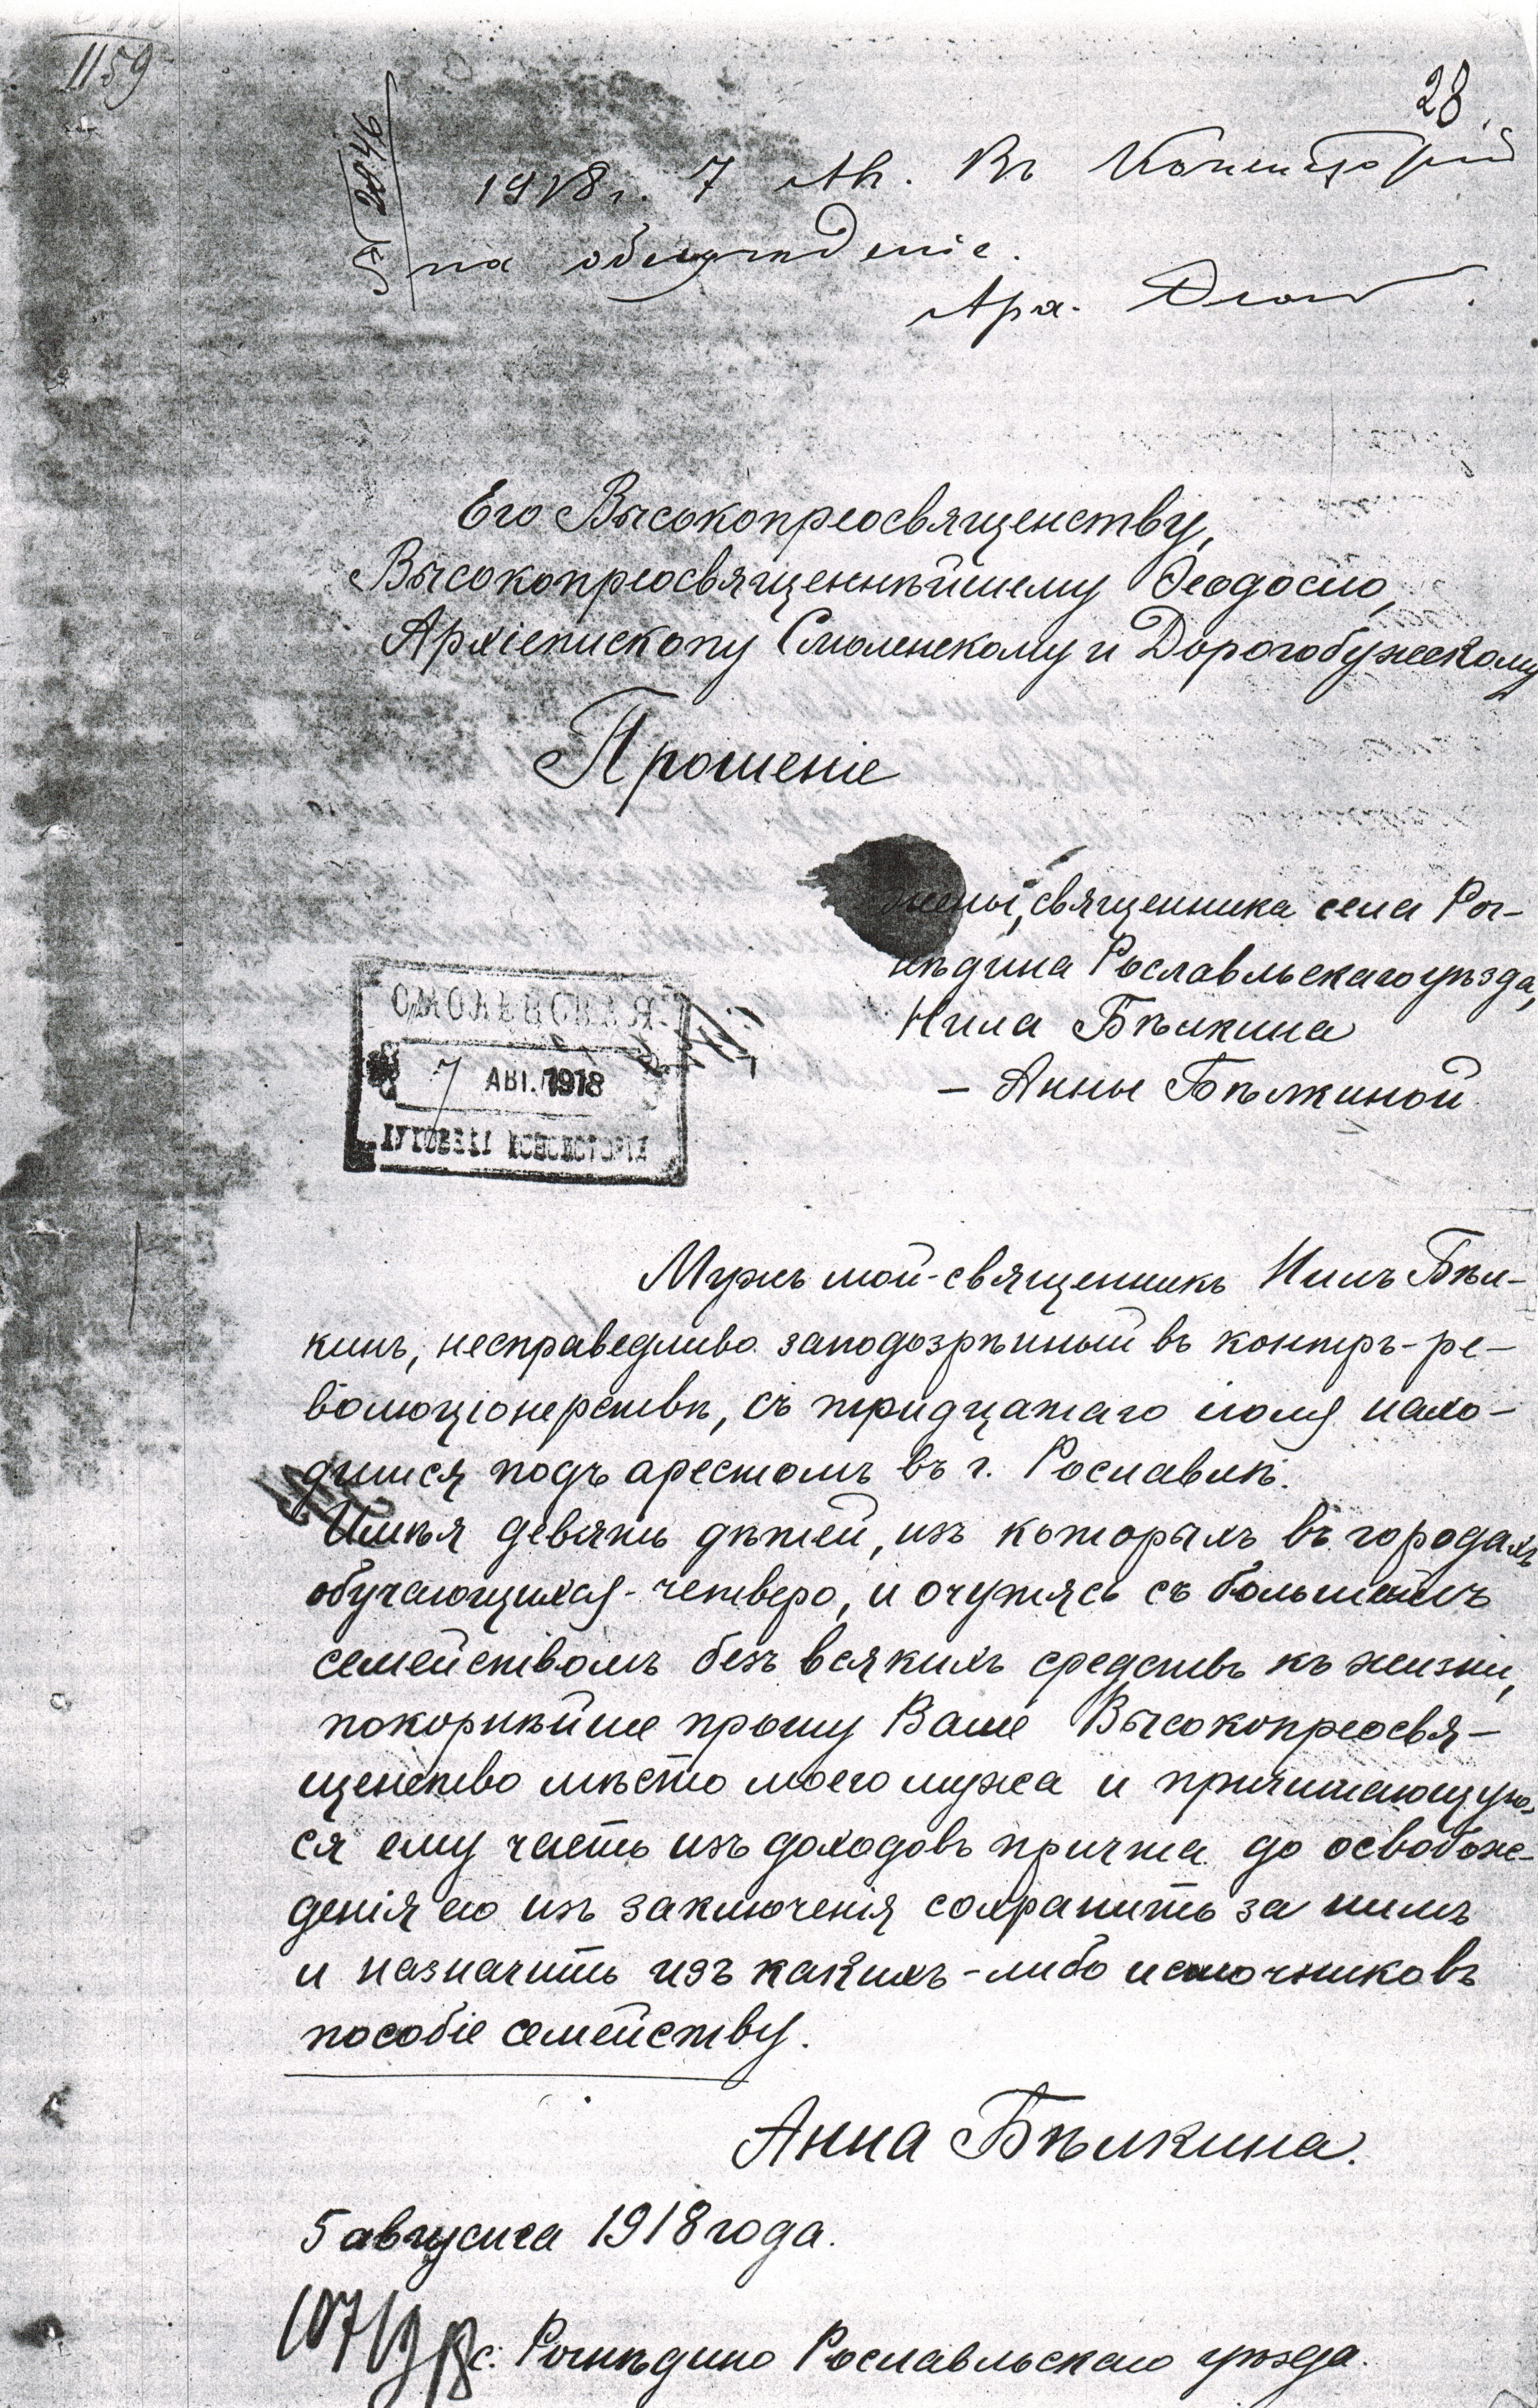 1159
28
№ 2846
1918 г. 7 Ав. Въ Консисторію
на обсужденіе.
Арх. Ѳеод
Его Высокопреосвященству,
Высокопреосвященнѣйшему Ѳеодосію,
Архіепископу Смоленскому и Дорогобужскому
Прошеніе
жены, священника села Рог-
нѣдина Рославльскаго уѣзда,
Нила Бѣлкина
– Анны Бѣлкиной
СМОЛЕНСКАЯ
7 АВГ. 1918
ДУХОВНАЯ КОНСИСТОРІЯ
Мужъ мой - священникъ Нилъ Бѣл-
кинъ, несправедливо заподозрѣнный въ контръ-ре-
волюціонерствѣ, съ тридцатаго іюля нахо-
дится подъ арестомъ въ г. Рославлѣ.
Имѣя девять дѣтей, изъ которыхъ въ городахъ
обучающихся - четверо, и очутясь съ большимъ
семействомъ безъ всякихъ средствъ къ жизни,
покорнѣйше прошу Ваше Высокопреосвя-
щенство мѣсто моего мужа и причитающую-
ся ему часть изъ доходовъ причта до освобож-
денія его изъ заключенія сохранить за нимъ
и назначить изъ какихъ-либо источниковъ
пособіе семейству.
Анна Бѣлкина.
5 августа 1918 года.
с. Рогнѣдино Рославльскаго уѣзда.